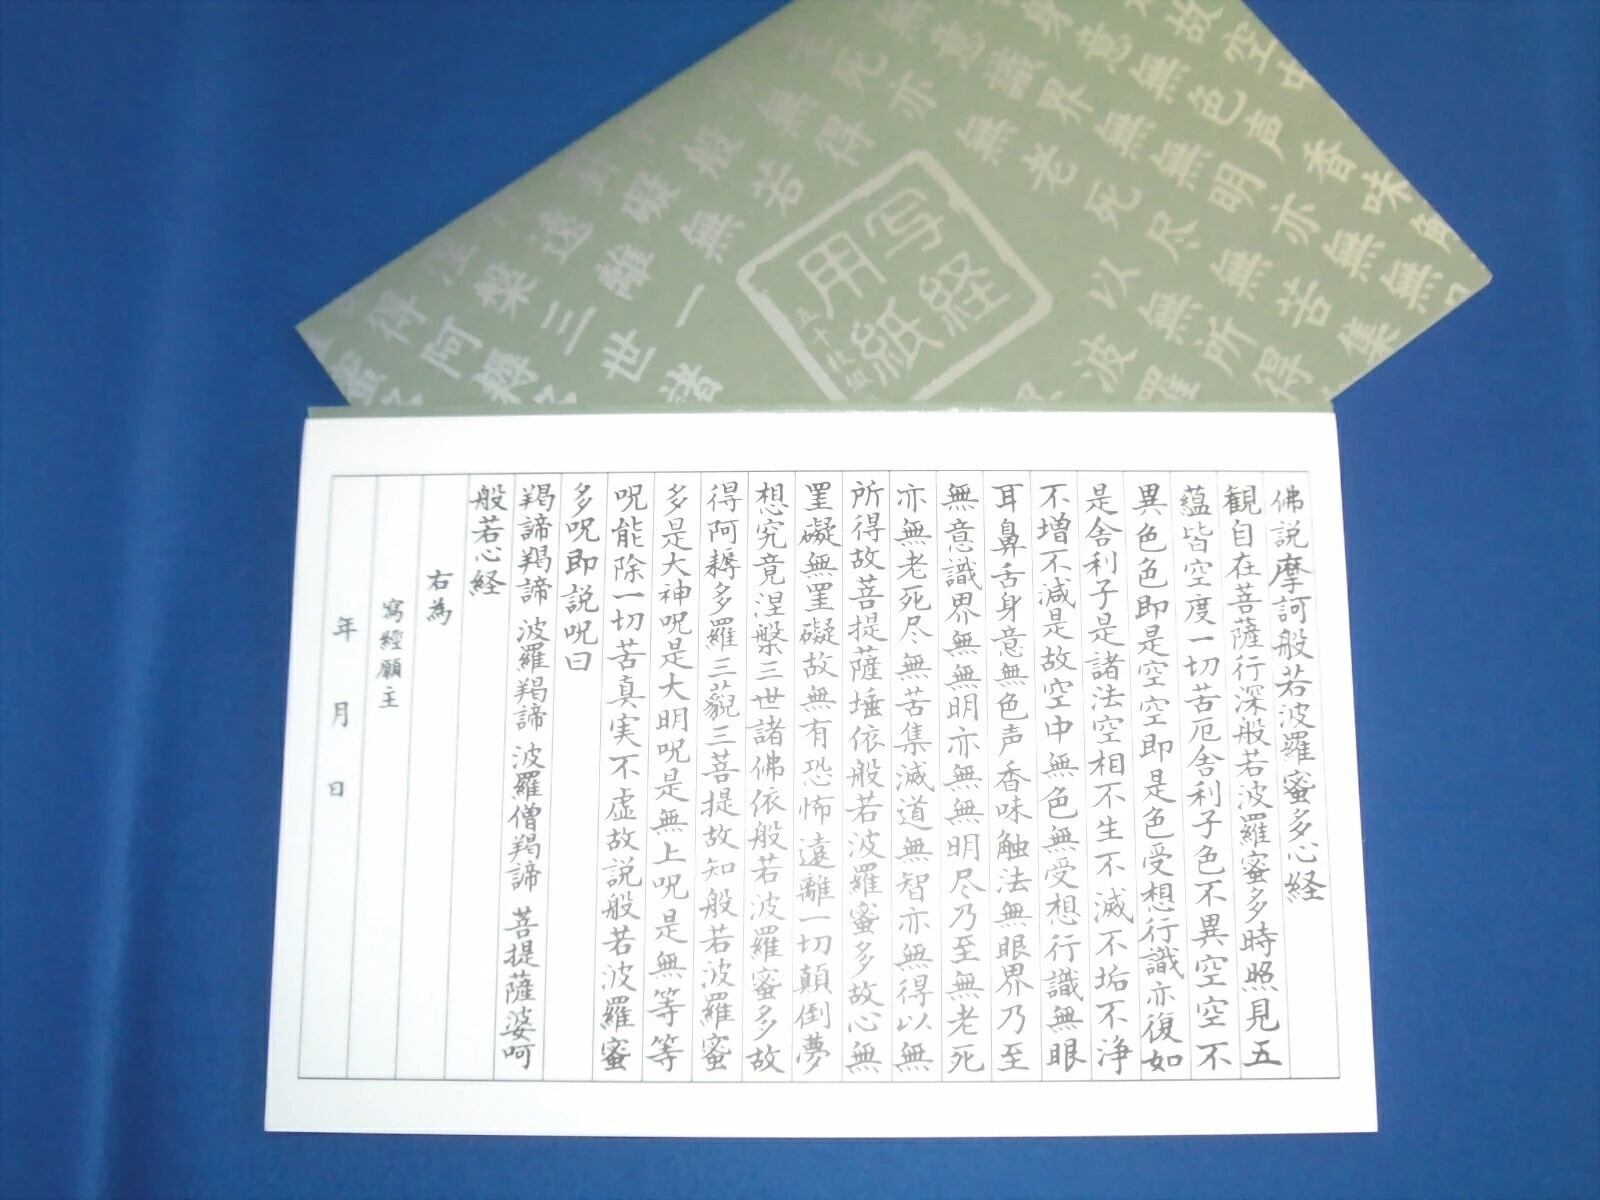 故空中
身意無色声香味
無意識界無無明亦無無
死亦無老死尽無苦集
無得以無所得
般若波羅
写経
用紙
五十枚組
礙無
遠離一
槃三世諸
得阿耨
佛説摩訶般若波羅蜜多心経
観自在菩薩行深般若波羅蜜多時照見五
蘊皆空度一切苦厄舎利子色不異空空不
異色色即是空空即是色受想行識亦復如
是舎利子是諸法空相不生不滅不垢不浄
不増不減是故空中無色無受想行識無眼
耳鼻舌身意無色声香味触法無眼界乃至
無意識界無無明亦無無明尽乃至無老死
亦無老死尽無苦集滅道無智亦無得以無
所得故菩提薩埵依般若波羅蜜多故心無
罣礙無罣礙故無有恐怖遠離一切顛倒夢
想究竟涅槃三世諸佛依般若波羅蜜多故
得阿耨多羅三藐三菩提故知般若波羅蜜
多是大神呪是大明呪是無上呪是無等等
呪能除一切苦真実不虚故説般若波羅蜜
多呪即説呪曰
羯諦羯諦 波羅羯諦 波羅僧羯諦 菩提薩婆呵
般若心経
右為
寫經願主
年 月 日